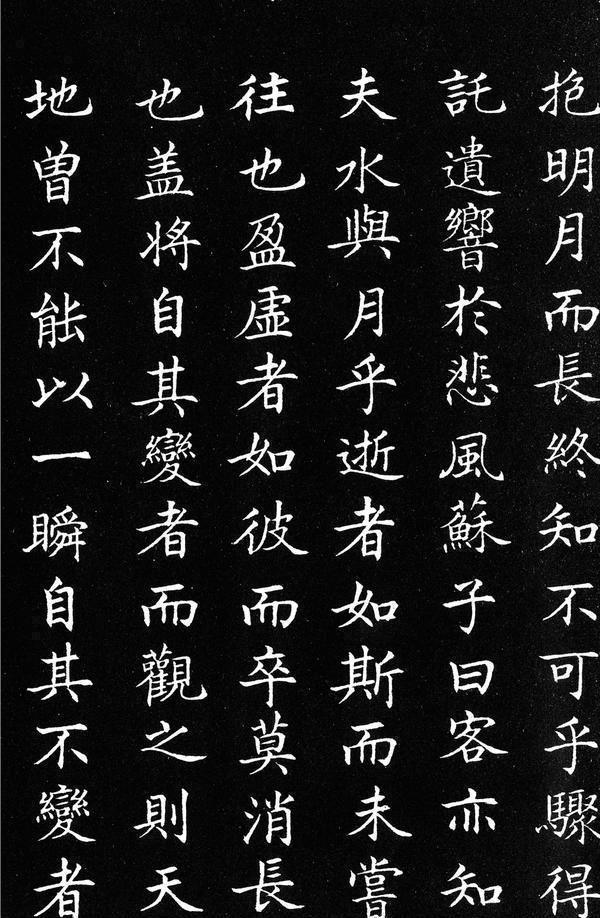 抱明月而長終知不可乎驟得
託遺響於悲風蘇子曰客亦知
夫水與月乎逝者如斯而未嘗
往也盈虛者如彼而卒莫消長
也盖將自其變者而觀之則天
地曽不能以一瞬自其不變者